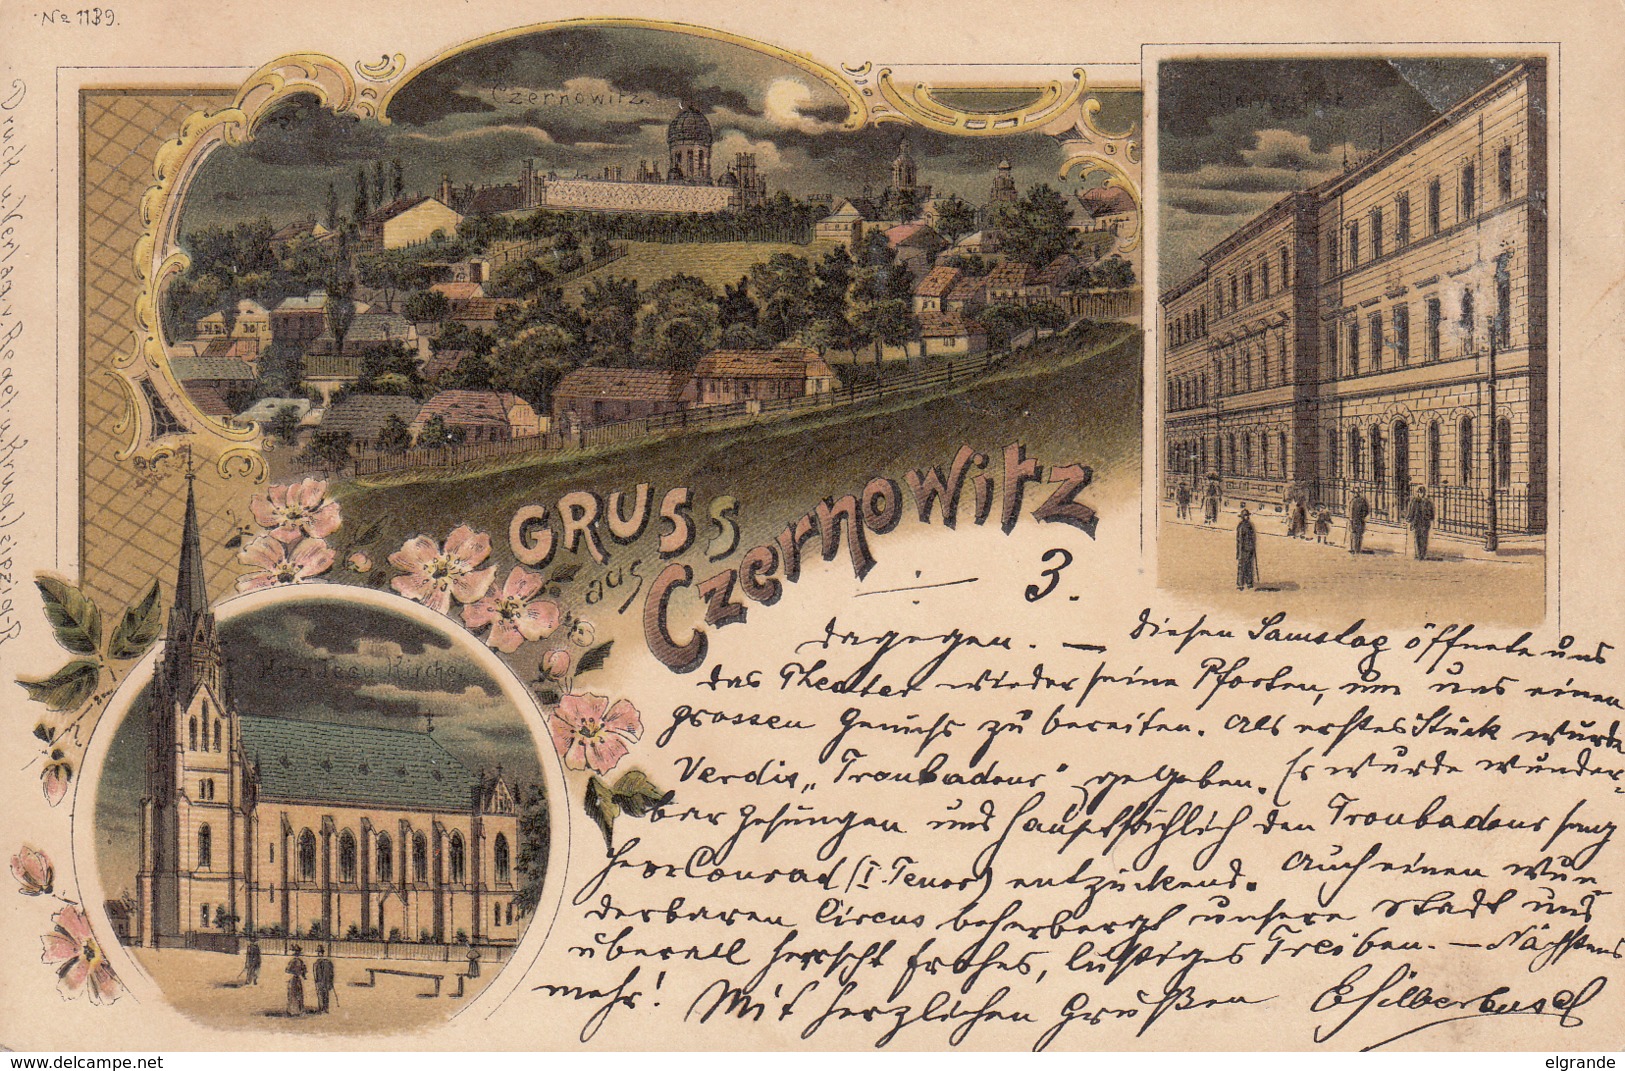 No 1139.
Czernowitz.
Universität
GRUSS
aus
Czernowitz
Herz Jesu Kirche.
3.
dagegen. — Diesen Samstag öffnete uns
das Theater wieder seine Pforten, um uns einen
grossen Genuss zu bereiten. Als erstes Stück wurde
Verdis „Troubadour" gegeben. Es wurde wunder-
bar gesungen und hauptsächlich den Troubadour sang
Herr Conrad (I. Tenor) entzückend. Auch einen wun
derbaren Circus beherbergt unsere Stadt und
überall herrscht frohes, lustiges Treiben. — Nächstens
mehr! Mit herzlichen Grüßen ESilberbusch
Druck u. Verlag v. Regel & Krug, Leipzig-R.
www.delcampe.net
elgrande